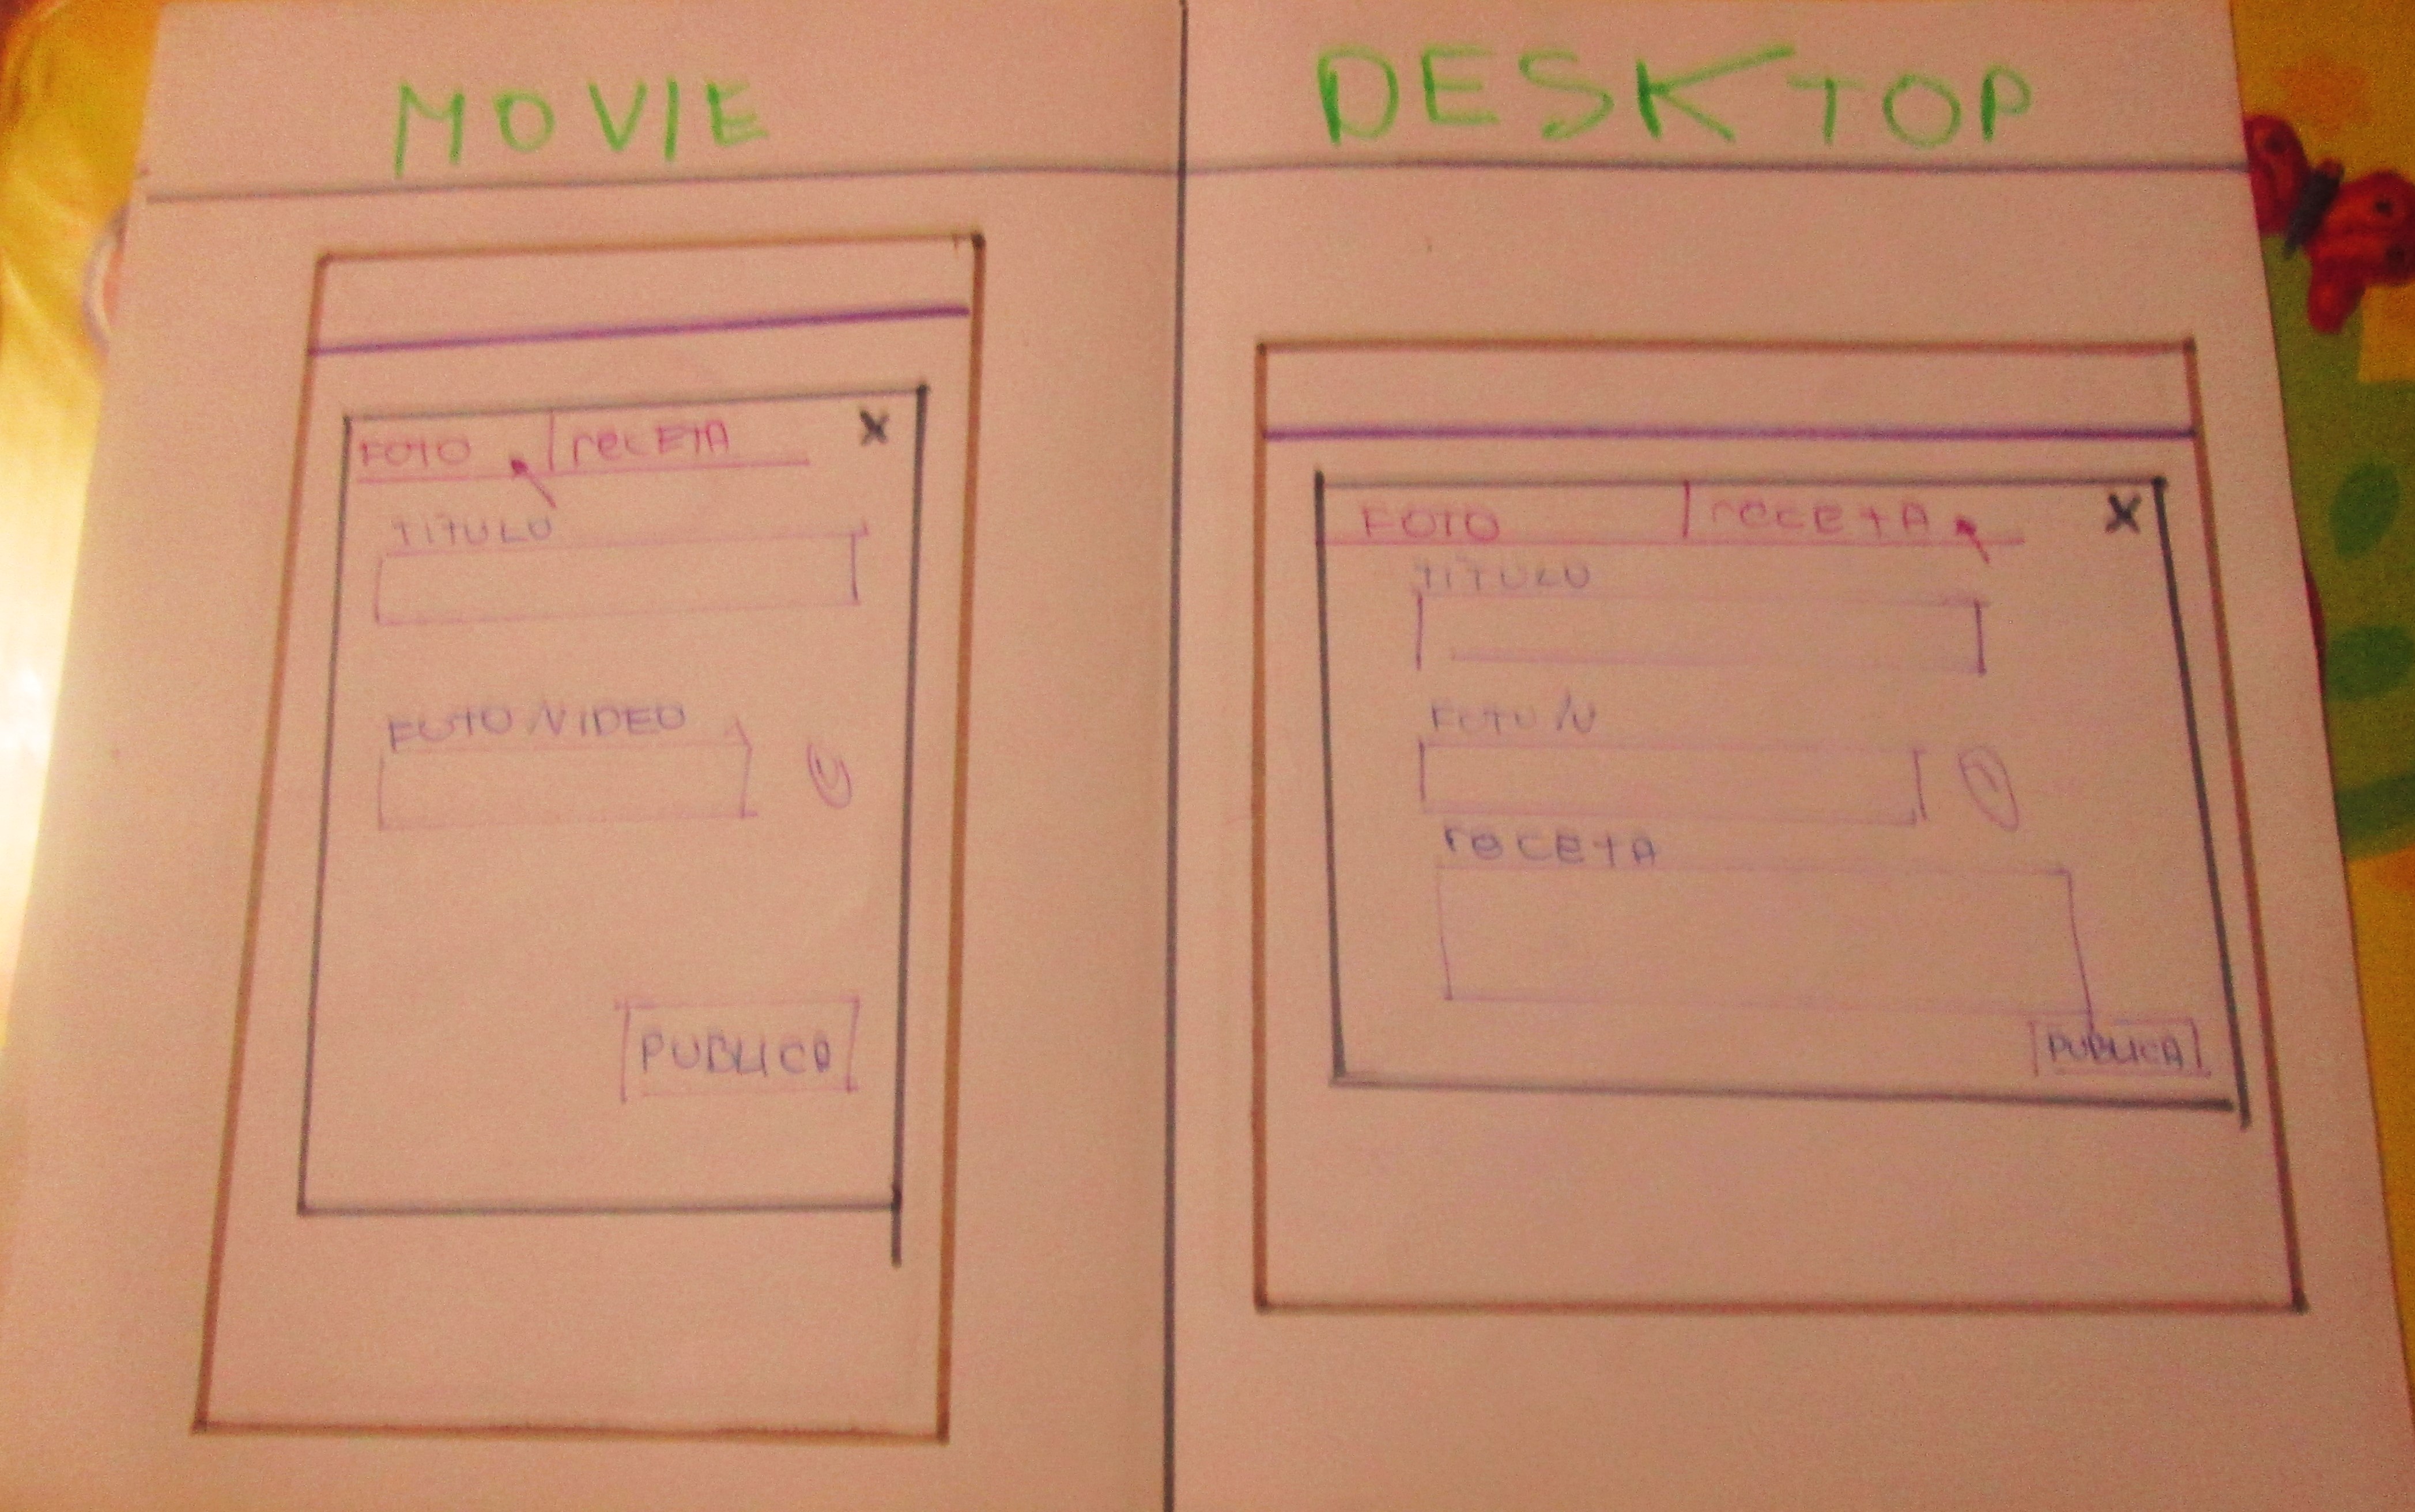 MOVIE
FOTO
receTA
X
TITULO
FOTO/VIDEO
PUBLICA
DESKTOP
FOTO
receTA
X
TITULO
FOTO/V
receTA
PUBLICA